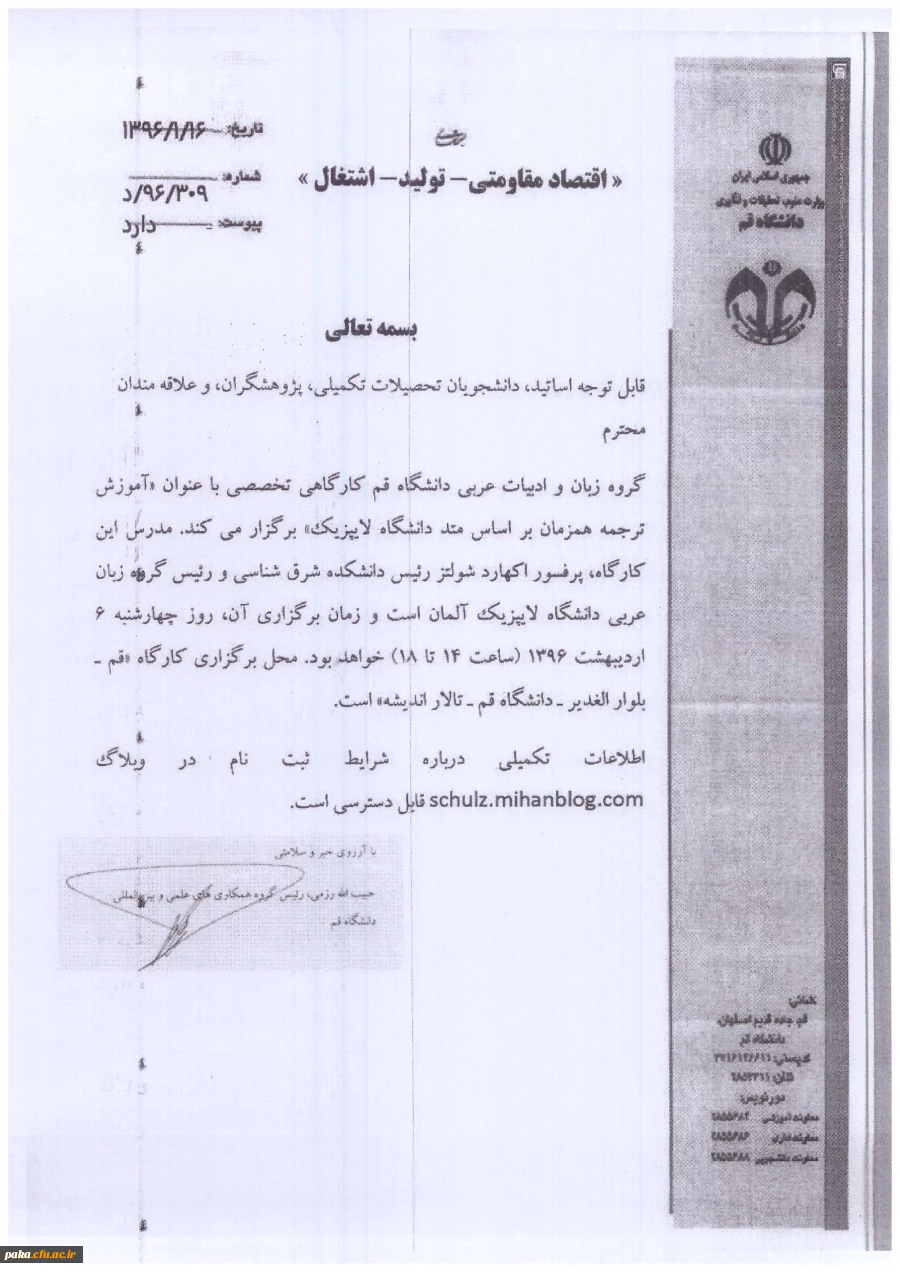 تاریخ: ۱۳۹۶/۱/۱۶
شماره: ۹۶/۳۰۹/د
پیوست: دارد
« اقتصاد مقاومتی – تولید – اشتغال »
جمهوری اسلامی ایران
وزارت علوم، تحقیقات و فناوری
دانشگاه قم
بسمه تعالی
قابل توجه اساتید، دانشجویان تحصیلات تکمیلی، پژوهشگران، و علاقه مندان
محترم
گروه زبان و ادبیات عربی دانشگاه قم کارگاهی تخصصی با عنوان «آموزش
ترجمه همزمان بر اساس متد دانشگاه لایپزیک» برگزار می کند. مدرس این
کارگاه، پرفسور اکهارد شولتز رئیس دانشکده شرق شناسی و رئیس گروه زبان
عربی دانشگاه لایپزیک آلمان است و زمان برگزاری آن، روز چهارشنبه ۶
اردیبهشت ۱۳۹۶ (ساعت ۱۴ تا ۱۸) خواهد بود. محل برگزاری کارگاه «قم ـ
بلوار الغدیر ـ دانشگاه قم ـ تالار اندیشه» است.
اطلاعات تکمیلی درباره شرایط ثبت نام در وبلاگ
schulz.mihanblog.com قابل دسترسی است.
با آرزوی خیر و سلامتی
حبیب الله رزمی، رئیس گروه همکاری های علمی و بین المللی
دانشگاه قم
نشانی:
قم، جاده قدیم اصفهان،
دانشگاه قم
کدپستی:
تلفن:
دورنویس:
معاونت آموزشی
معاونت اداری
معاونت دانشجویی
paka.cfu.ac.ir